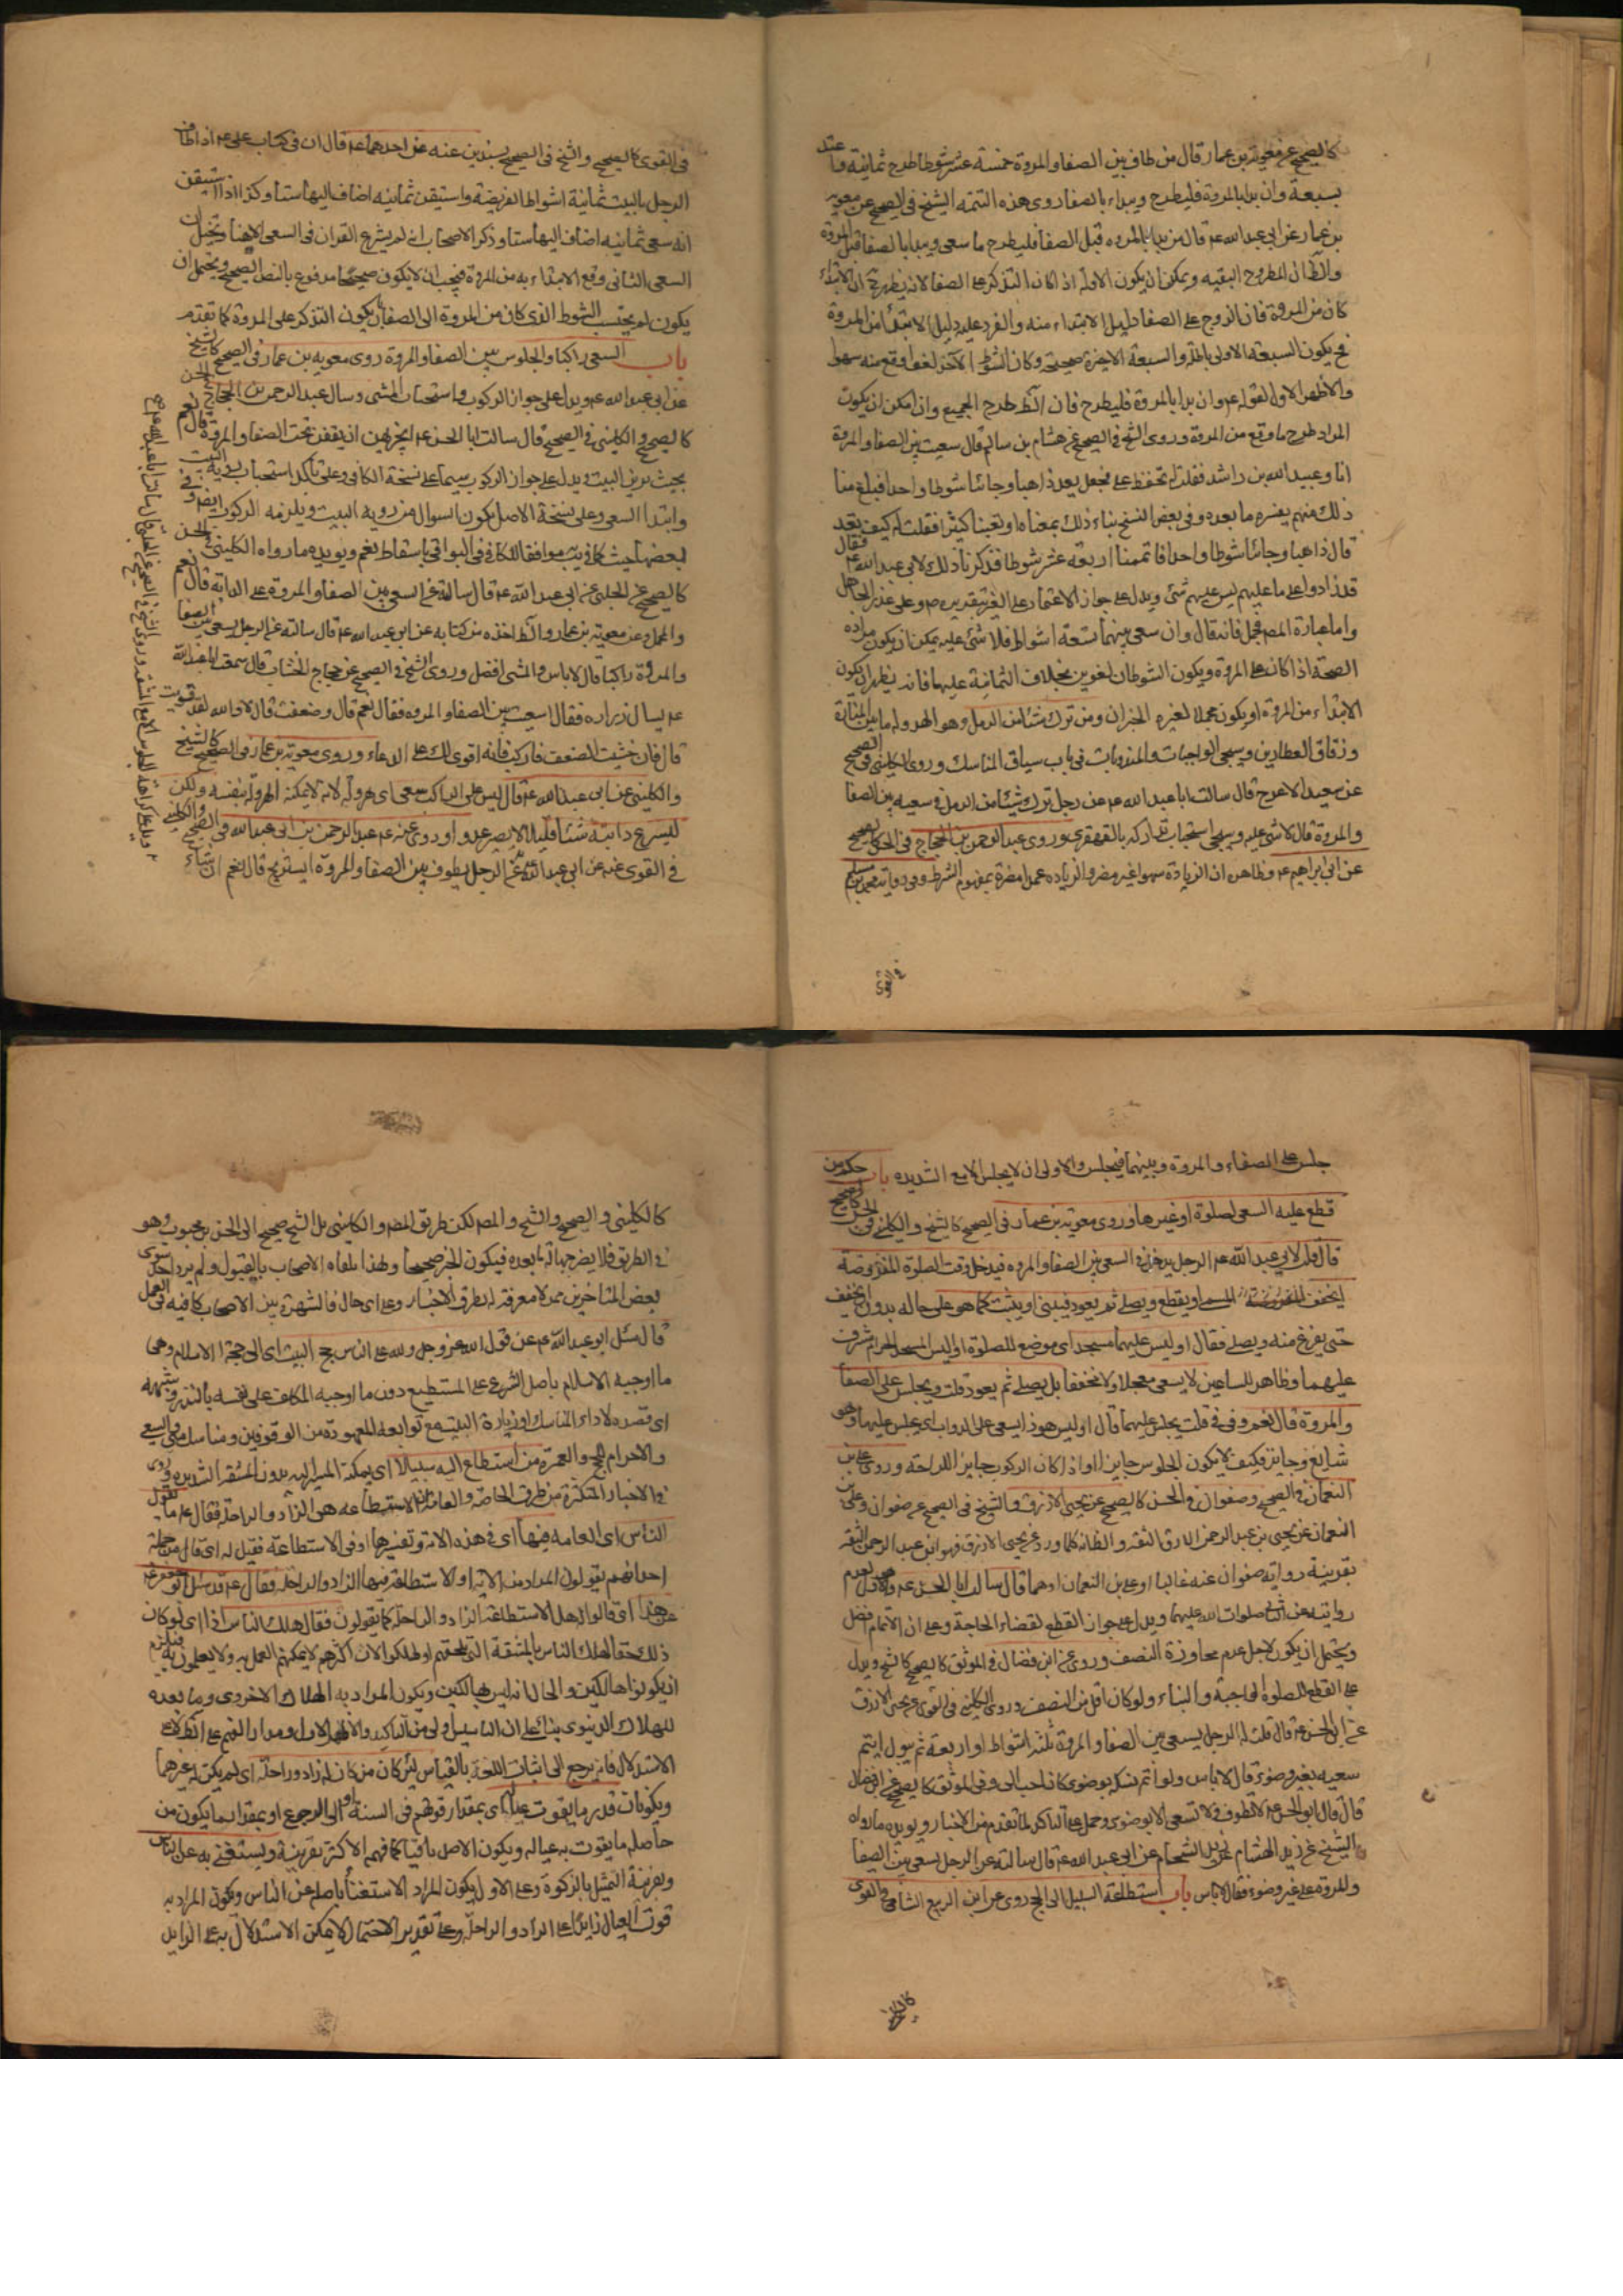 كالصحيح عن معوية بن عمار قال من طاف بين الصفا والمروة خمسة عشر شوطا طرح ثمانية واعتد
بسبعة وان بدا بالمروة فليطرح ويبداء بالصفا روى هذه التتمه الشيخ في الصحيح عن معوية
بن عمار عن ابي عبد الله عم قال من بدا بالمروه قبل الصفا فليطرح ما سعى ويبدا بالصفا قبل المروة
والظ ان المطروح البقيه ويمكن ان يكون الاوله اذا كان التذكر على الصفا لانه يظهر ح ان الابتداء
كان من المروة فان الزوج على الصفا دليل الابتداء منه والفرد عليه دليل الابتداء من المروة
فح يكون السبعة الاولى باطلة والسبعة الاخيرة صحيحة وكان الشوط الاخر لغوا وقع منه سهوا
والاظهر الاول لقوله عم وان بدا بالمروة فليطرح فان الظ طرح الجميع وان امكن ان يكون
المراد طرح ما وقع من المروة وروى الشيخ في الصحيح عن هشام بن سالم قال سعيت بين الصفا والمروة
انا وعبيد الله بن راشد فقلت له تحفظ على فجعل يعد ذاهبا وجائيا شوطا واحدا فبلغ منا
ذلك منهم يفسره ما بعده وفي بعض النسخ بناء ذلك بمعناه او تعبنا كثيرا فقلت له كيف تعد
قال ذاهبا وجائيا شوطا واحدا فاتممنا اربعة عشر شوطا فذكرنا ذلك لابي عبد الله عم فقال
قد زادوا على ما عليهم ليس عليهم شئ ويدل على جواز الاعتماد على الغير بتقديره ص وعلى عذر الجاهل
واما عبارة المص فمجمل فانه قال وان سعى بينهما تسعة اشواط فلا شئ عليه يمكن ان يكون مراده
الصحة اذا كان على المروة ويكون الشوطان لغوين بخلاف الثمانية عليها فانه يظهر ان يكون
الابتداء من المروة او يكون مجملا لغيره الخبران ومن ترك شيئا من الرمل وهو الهروله ما بين المنارة
وزقاق العطارين وسيجئ الواجبات والمندوبات في باب سياق المناسك وروى الكليني في الصحيح
عن سعيد الاعرج قال سالت ابا عبد الله عم عن رجل ترك شيئا من الرمل في سعيه بين الصفا
والمروة قال لا شئ عليه وسيجئ استحباب تداركه بالقهقرى وروى عبد الرحمن بن الحجاج في الحسن كالصحيح
عن ابي ابراهيم عم وظاهره ان الزيادة سهوا غير مضر والزياده عمدا مضرة بمفهوم الشرط وفي رواية محمد بن مسلم
في القوى
في القوى كالصحيح والشيخ في الصحيح بسندين عنه عن احدهما عم قال ان في كتاب على عم اذا طاف
الرجل بالبيت ثمانية اشواط الفريضة واستيقن ثمانيه اضاف اليها ستا وكذا اذا استيقن
انه سعى ثمانيه اضاف اليها ستا وذكر الاصحاب انه لم يشرع القران في السعى الا هنا وتخيل ان
السعى الثاني وقع الابتداء به من المروة فيجب ان لا يكون صحيحا مدفوع بالنص الصحيح ويحتمل ان
يكون لم يحتسب الشوط الذي كان من المروة الى الصفا بان يكون التذكر على المروة كما تقدم
باب السعى راكبا والجلوس بين الصفا والمروة روى معويه بن عمار في الصحيح كالشيخ
عن ابي عبد الله عم ويدل على جواز الركوب واستحباب المشى وسال عبد الرحمن بن الحجاج في الحسن
كالصحيح والكليني في الصحيح قال سالت ابا الحسن عم ايجزيهن ان يقفن تحت الصفا والمروة قال نعم
بحيث يرين البيت ويدل على جواز الركوب سيما على نسخة الكافي وعلى تاكد استحباب رؤية البيت
وابتدا السعى وعلى نسخة الاصل يكون السؤال من رويه البيت ويلزمه الركوب ايضا وفي
بعضها بحيث كما في يب موافقا للكافي في البواقي باسقاط نعم ويويده ما رواه الكليني في الحسن
كالصحيح عن الحلبي عن ابي عبد الله عم قال سالته عن السعى بين الصفا والمروة على الدابة قال نعم
وعلى المحمل وعن معوية بن عمار والظ اخذه من كتابه عن ابي عبد الله عم قال سالته عن الرجل يسعى بين الصفا
والمروة راكبا قال لا باس والمشى افضل وروى الشيخ في الصحيح عن حجاج الخشاب قال سمعت ابا عبد الله
عم يسال زراره فقال اسعيت بين الصفا والمروه فقال نعم قال وضعفت قال لا والله لقد قويت
قال فان خشيت الضعف فاركب فانه اقوى لك على الدعاء وروى معوية بن عمار في الصحيح كالشيخ
والكليني عن ابى عبد الله عم قال ليس على الراكب سعى اى هروله لانه لا يمكنه الهروله بنفسه ولكن
ليسرع دابته شيئا قليلا لا يصير عدوا وروى عنه عم عبد الرحمن بن ابي عبد الله في الصحيح والكليني
في القوى عنه عن ابي عبد الله عم عن الرجل يطوف بين الصفا والمروة ايستريح قال نعم ان شاء
جلس على الصفاء والمروة وبينهما فيجلس والاولى ان لا يجلس الا مع الشديده باب حكم من
قطع عليه السعى لصلوة او غيرها وروى معوية بن عمار في الصحيح كالشيخ والكليني في الحسن كالصحيح
قال قلت لابي عبد الله عم الرجل يدخل في السعى بين الصفا والمروه فيدخل وقت الصلوة المفروضة
ايخفف او يقطع ويصلى ثم يعود فيبني او يثبت كما هو على حاله بدون التخفيف
حتى يفرغ منه ويصلي فقال او ليس عليهما مسجد اى موضع للصلوة او اليس المسجد الحرام مشرف
عليهما وظاهر للساعين لا يسعى معجلا ولا مخففا بل يصلى ثم يعود قلت ويجلس على الصفا
والمروة قال نعم وفي في قلت يجلس عليهما قال او ليس هو ذا يسعى على الدواب اى يجلس عليها وهو
شايع وجايز فكيف لا يكون الجلوس جايزا او اذا كان الركوب جايز اللراحة وروى على بن
النعمان في الصحيح وصفوان في الحسن كالصحيح عن يحيى الازرق والشيخ في الصحيح عن صفوان وعلى بن
النعمان عن يحيى بن عبد الرحمن الازرق الثقه والظ انه كلما ورد عن يحيى الازرق فهو ابن عبد الرحمن الثقة
بقرينة رواية صفوان عنه غالبا او على بن النعمان او هما قال سالت ابا الحسن عم
روايته عن صلوات الله عليهما ويدل على جواز القطع لقضاء الحاجة وعلى ان الاتمام افضل
ويحتمل ان يكون لاجل عدم مجاوزة النصف وروى عن ابن فضال في الموثق كالصحيح كالشيخ ويدل
على القطع للصلوة الحاجبة والبناء ولو كان اقل من النصف وروى الكليني في القوى عن يحيى الازرق
عن ابي الحسن عم قال قلت له الرجل يسعى بين الصفا والمروة ثلثة اشواط او اربعة ثم يبول ايتم
سعيه بغير وضوء قال لا باس ولو اتم نسكه بوضوء كان احب الى وفي الموثق كالصحيح عن ابن فضال
قال قال ابو الحسن عم لا تطوف ولا تسعى الا بوضوء وحمل على التاكد لما تقدم من الاخبار ويويده ما رواه
الشيخ عن زيد الشحام عن ابي عبد الله عم قال سالته عن الرجل يسعى بين الصفا
والمروة على غير وضوء فقال لا باس باب استطاعة السبيل الى الحج روى عن ابن الربيع الشامي في القوى
كالكليني
كالكليني في الصحيح والشيخ والمص لكن طريق المص والكليني بل الشيخ صحيح الى الحسن بن محبوب وهو
في الطريق فلا يضر جهالة ما بعده فيكون الخبر صحيحا ولهذا تلقاه الاصحاب بالقبول ولم يرد احد سوى
بعض المتاخرين ممن لا معرفة له بطرق الاخبار وعلى اى حال فالشهرة بين الاصحاب كافيه في العمل
قال سئل ابو عبد الله عم عن قول الله عز وجل ولله على الناس حج البيت اى الى حجة الاسلام وهى
ما اوجبه الاسلام باصل الشرع على المستطيع دون ما اوجبه المكلف على نفسه بالنذر وشبهه
اى قصده لاداء المناسك او زيارة البيت مع توابعه المعهودة من الوقوفين ومناسك منى والسعى
والاحرام للحج والعمرة من استطاع اليه سبيلا اى يمكنه المسير اليه بدون المشقة الشديدة وروى
في الاخبار المتكثرة من طرق الخاصة والعامة ان الاستطاعه هى الزاد والراحلة فقال عم ما يقول
الناس اى العامه فيها اى في هذه الاية وتفسيرها او في الاستطاعة فقيل له اى قال من جملة
احدانهم يقولون المراد من الاية او الاستطاعة فيها الزاد والراحله فقال عم قد سئل ابو جعفر عم
عن هذا اى قالوا له الاستطاعة الزاد والراحلة كما يقولون فقال هلك الناس اذا اى لو كان
ذلك حقا لهلك الناس بالمشقة التي يلحقهم او لهلكوا لان اكثرهم لا يمكنهم العمل به ولا يعملون به فيلزم
ان يكونوا هالكين والحال انه ليس هالكين ويكون المراد به الهلاك الاخروى وما بعده
للهلاك الدنيوى بناء على ان التاسيس اولى من التاكيد والاظهر الاول ومدار الفهم على النظر لا على
الاستدلال فانه يرجع الى اثبات اللغة بالقياس لئن كان من كان له زاد وراحلة اى لم يكن له غيرهما
ويكونان قدر ما يقوت عياله اى بمقدار قوتهم في السنة او الى الرجوع او بمقدار ما يكون من
حاصله ما يقوت به عياله ويكون الاصل باقيا كما فهمه الاكثر بقرينة ويستغنى به عن الناس
وبقرينة التمثيل بالزكوة وعلى الاول يكون المراد الاستغنا باصله عن الناس ويكون المراد به
قوت العيال زايدا على الزاد والراحلة وعلى تقدير الاحتمال لا يمكن الاستدلال به على الزايد